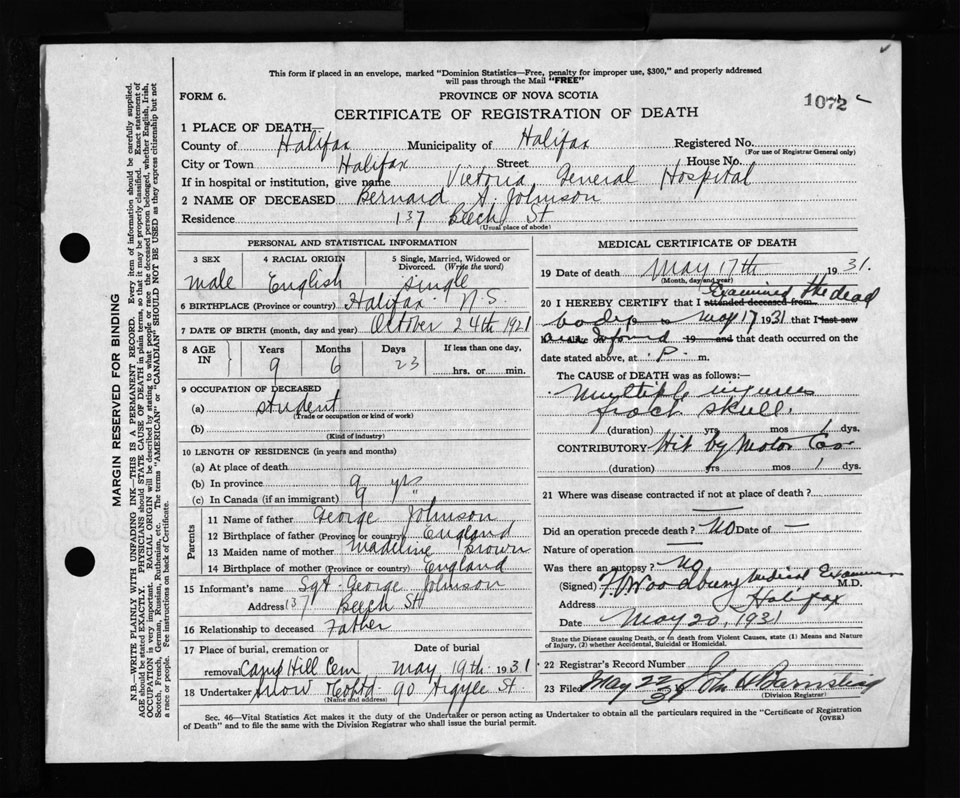 This form if placed in an envelope, marked "Dominion Statistics—Free, penalty for improper use, $300," and properly addressed
will pass through the Mail "FREE"
FORM 6.
PROVINCE OF NOVA SCOTIA
1072
CERTIFICATE OF REGISTRATION OF DEATH
1 PLACE OF DEATH—
County of Halifax Municipality of Halifax Registered No.
(For use of Registrar General only)
City or Town Halifax Street House No.
If in hospital or institution, give name Victoria General Hospital
2 NAME OF DECEASED Bernard A. Johnson
Residence 137 Beech St
(Usual place of abode)
PERSONAL AND STATISTICAL INFORMATION
3 SEX
4 RACIAL ORIGIN
5 Single, Married, Widowed or
Divorced. (Write the word)
Male English Single
6 BIRTHPLACE (Province or country) Halifax N.S.
7 DATE OF BIRTH (month, day and year) October 24th 1921
8 AGE
IN
Years Months Days
If less than one day,
9 6 23
hrs. or min.
9 OCCUPATION OF DECEASED
(a) student
(Trade or occupation or kind of work)
(b)
(Kind of industry)
10 LENGTH OF RESIDENCE (in years and months)
(a) At place of death
(b) In province 9 yrs
(c) In Canada (if an immigrant) 9 "
Parents
11 Name of father George Johnson
12 Birthplace of father (Province or country) England
13 Maiden name of mother Madeline Brown
14 Birthplace of mother (Province or country) England
15 Informant's name Sgt. George Johnson
Address 137 Beech St
16 Relationship to deceased Father
17 Place of burial, cremation or
removal Camp Hill Cem
Date of burial
May 19th 1931
18 Undertaker Snow & Co Ltd 90 Argyle St.
(Name and address)
MEDICAL CERTIFICATE OF DEATH
19 Date of death May 17th 1931.
(Month, day and year)
20 I HEREBY CERTIFY that I attended deceased from Examined the dead
body to May 17 1931 that I last saw
19 and that death occurred on the
date stated above, at P. m.
The CAUSE of DEATH was as follows:—
Multiple injuries
frac skull.
(duration) yrs mos 1 dys.
CONTRIBUTORY Hit by Motor Car
(duration) yrs mos 1 dys.
21 Where was disease contracted if not at place of death?
—
Did an operation precede death? No Date of —
Nature of operation —
Was there an autopsy? No
(Signed) F. V. Woodbury Medical Examiner M.D.
Address Halifax
Date May 20, 1931
State the Disease causing Death, or in death from Violent Causes, state (1) Means and Nature
of Injury, (2) whether Accidental, Suicidal or Homicidal.
22 Registrar's Record Number
23 Filed May 22 31 John A Barnstead
(Division Registrar)
Sec. 46—Vital Statistics Act makes it the duty of the Undertaker or person acting as Undertaker to obtain all the particulars required in the "Certificate of Registration
of Death" and to file the same with the Division Registrar who shall issue the burial permit.
(OVER)
MARGIN RESERVED FOR BINDING
N.B.—WRITE PLAINLY WITH UNFADING INK—THIS IS A PERMANENT RECORD. Every item of information should be carefully supplied.
AGE should be stated EXACTLY. PHYSICIANS should STATE CAUSE OF DEATH in plain terms, so that it may be properly classified. Exact statement of
OCCUPATION is very important. RACIAL ORIGIN will be described by stating to what people or race the deceased person belonged, whether English, Irish,
Scotch, French, German, Russian, Ruthenian, etc. The terms "AMERICAN" or "CANADIAN" SHOULD NOT BE USED as they express citizenship but not
a race or people. Fee instructions on back of Certificate.